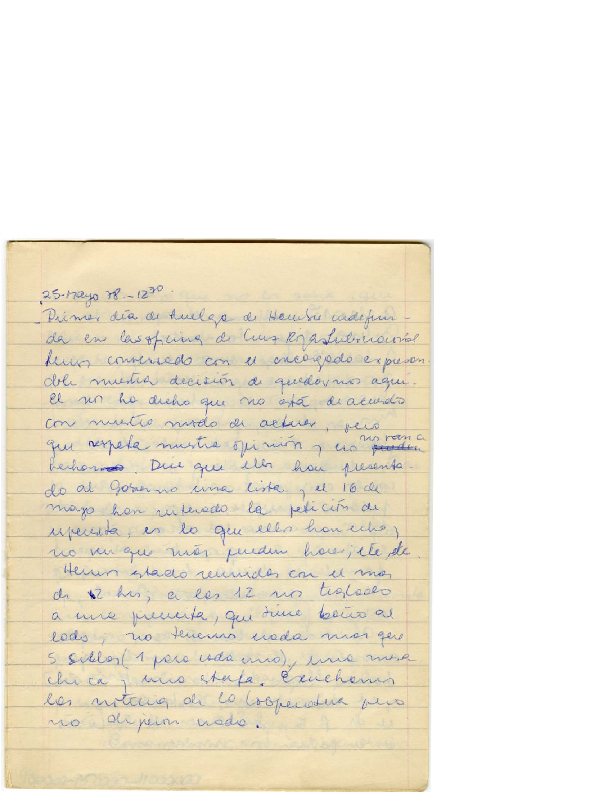 25-Mayo 78 - 12³⁰.
Primer día de huelga de Hambre indefini-
da en las oficina de Cruz Roja Internacional
hemos conversado con el encargado expresan-
dole nuestra decisión de quedarnos aquí.
El nos ha dicho que no está de acuerdo
con nuestro modo de actuar, pero
que respeta nuestra opinión y no nos van a
hechar. Dice que ellos han presenta-
do al Gobierno una lista y el 16 de
mayo han reiterado la petición de
respuesta, es lo que ellos han echo y
no ven que más pueden hacer, etc, etc.
Hemos estado reunidos con el mas
de 2 hrs; a las 12 nos traslado
a una piecesita, que tiene baño al
lado, no tenemos nada mas que
5 sillas (1 para cada uno), una mesa
chica y una estufa. Escuchamos
las noticias de la Cooperativa pero
no dijeron nada.